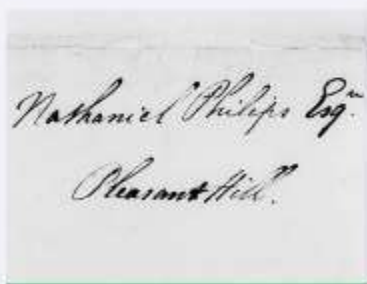 Nathaniel Philips Esqr.
Pleasant Hill.